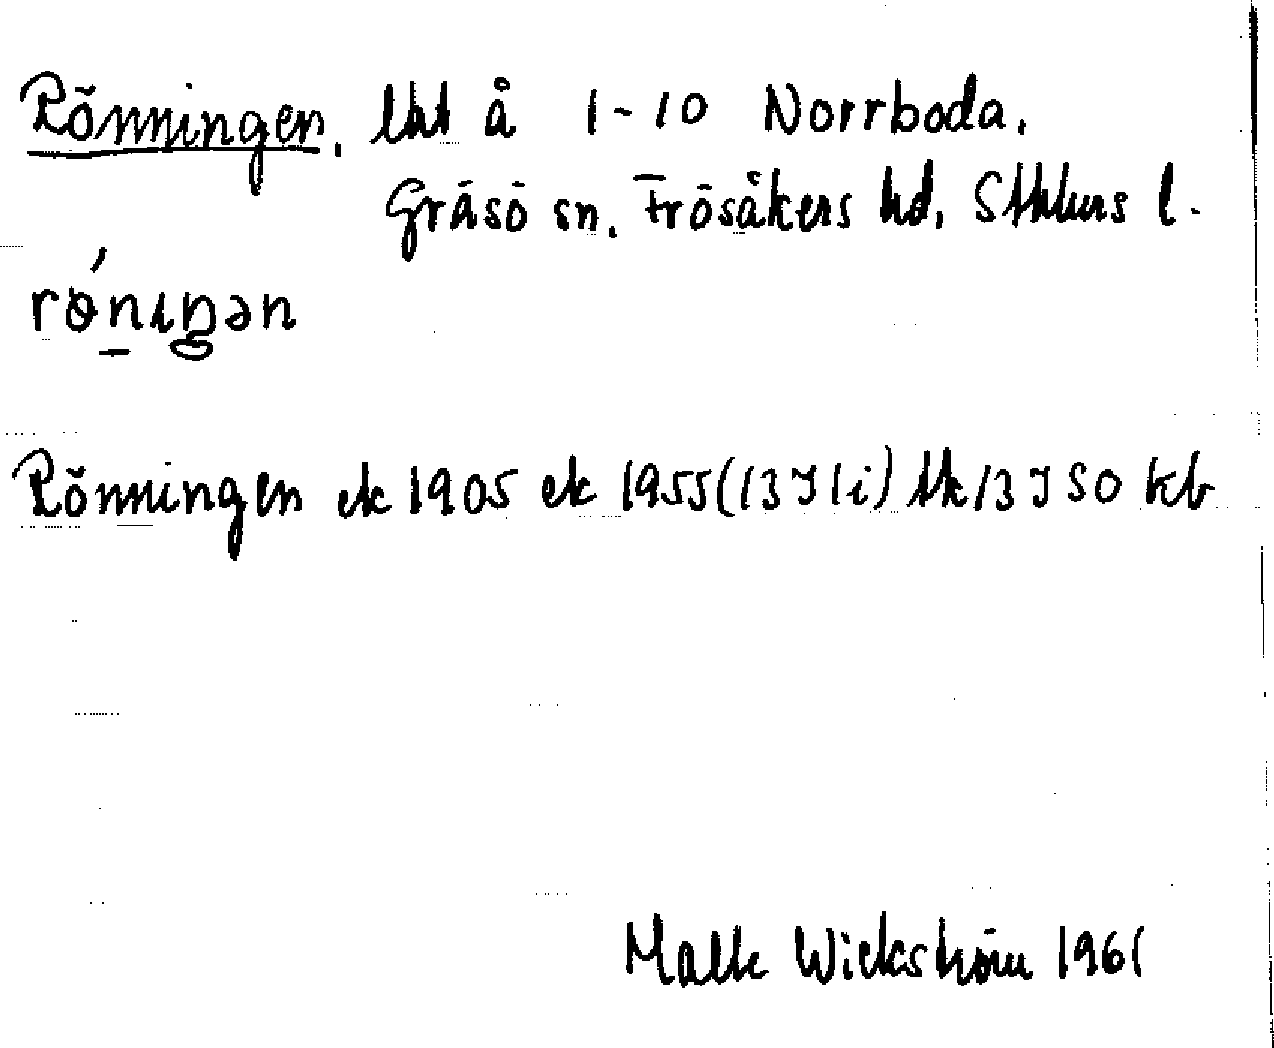 Rönningen. lht å 1-10 Norrboda.
Gräsö sn. Frösåkers hd. Sthlms l.
rö́niŋən
Rönningen ek 1905 ek 1955 (13 J 1i) tk 13 J SO kb
Malte Wickström 1961